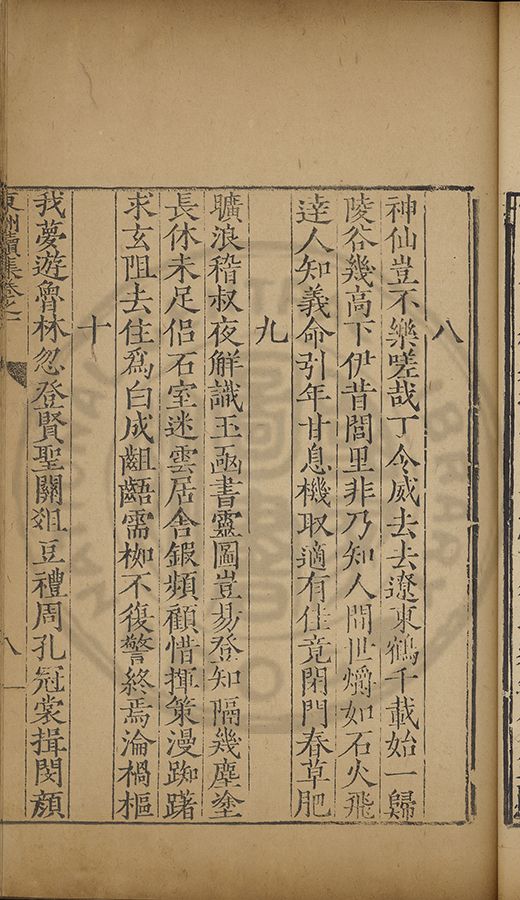 八
神仙豈不樂嗟哉丁令威去去遼東鶴千載始一歸
陵谷幾高下伊昔閭里非乃知人間世爝如石火飛
達人知義命引年甘息機取適有佳竟閉門春草肥
九
曠浪稽叔夜解識玉函書靈圖豈易登知隔幾塵塗
長休未足侶石室迷雲居舍鍜頻顧惜揮策漫踟躇
求玄阻去住爲白成齟齬需枷不復警終焉淪槁樞
十
我夢遊魯林忽登賢聖關俎豆禮周孔冠裳揖閔顏
東洲續集卷之
八